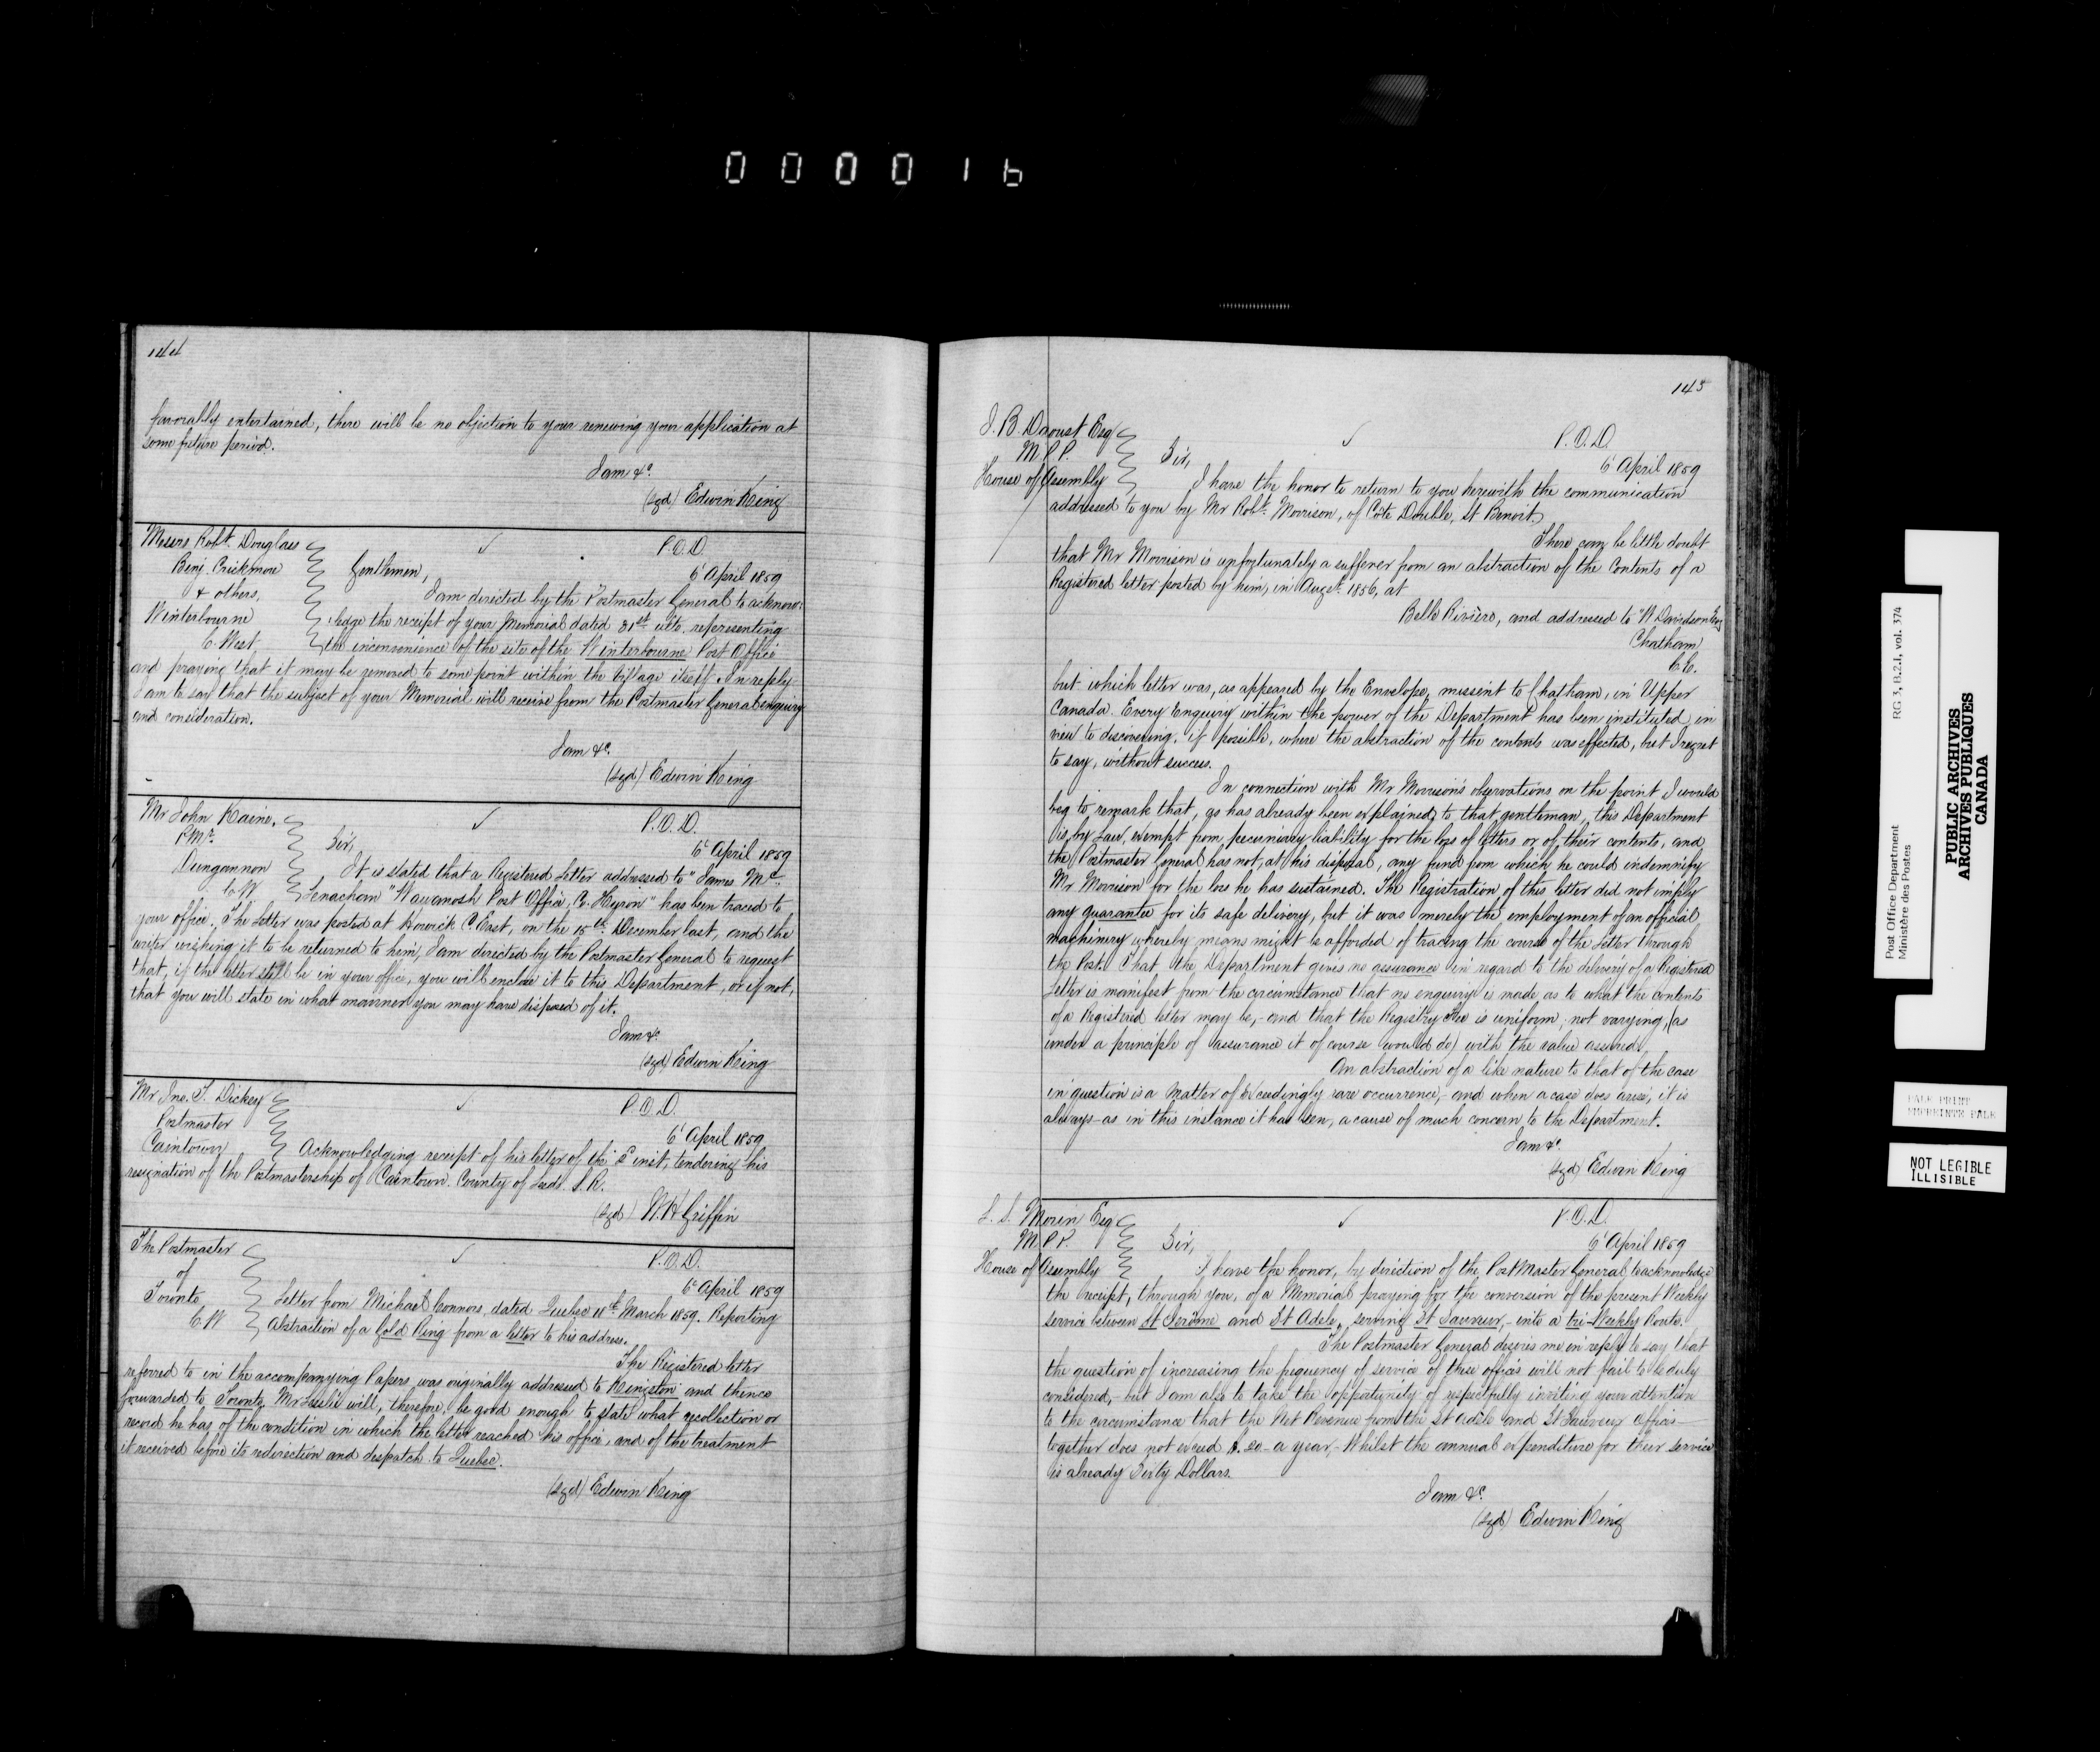 000016
144
favorably entertained, there will be no objection to your renewing your application at
some future period.
I am &c.
(sgd) Edwin King
Messrs. Robt. Douglass
Benj. Crickmore
& others,
Winterbourne
C. West.
P.O.D.
6 April 1859
Gentlemen,
I am directed by the Postmaster General to acknow-
ledge the receipt of your Memorial dated 31st ulto. representing
the inconvenience of the site of the Winterbourne Post Office
and praying that it may be removed to some point within the Village itself. In reply
I am to say that the subject of your Memorial will receive from the Postmaster General enquiry
and consideration.
I am &c.
(sgd) Edwin King
Mr John Raine.
P.Mr.
Dungannon
C.W.
P.O.D.
6 April 1859
Sir,
It is stated that a Registered Letter addressed to "James Mc
Wawanosh Post Office, Co. Huron" has been traced to
your office. The Letter was posted at Howick C. East, on the 15th December last, and the
writer wishing it to be returned to him, I am directed by the Postmaster General to request
that, if the letter still be in your office, you will enclose it to this Department, or if not,
that you will state in what manner you may have disposed of it.
I am &c.
(sgd) Edwin King
Mr Jno. T. Dickey
Postmaster
Caintown
P.O.D.
6 April 1859
Acknowledging receipt of his letter of the inst, tendering his
resignation of the Postmastership of Caintown. County of Leeds. S.R.
(sgd) W H Griffin
The Postmaster
of
Toronto
C.W
P.O.D.
6 April 1859
Letter from Michael Connors, dated Quebec 11th March 1859. Reporting
Abstraction of a Gold Ring from a letter to his address.
The Registered letter
referred to in the accompanying Papers was originally addressed to Kingston and thence
forwarded to Toronto. Mr Leslie will, therefore, be good enough to state what recollection or
record he has of the condition in which the letter reached his office, and of the treatment
it received before its redirection and despatch to Quebec.
(sgd) Edwin King
145
J. B. Daoust Esq
M.P.P.
House of Assembly
P.O.D.
6 April 1859
Sir,
I have the honor to return to you herewith the communication
addressed to you by Mr Robt. Morrison, of Côte Double, St Benoit.
There can be little doubt
that Mr Morrison is unfortunately a sufferer from an abstraction of the Contents of a
Registered letter posted by him, in Augst. 1856, at
Belle Rivière, and addressed to "W Davidson Esq
Chatham
C.E.
but which letter was, as appeared by the Envelope, missent to Chatham, in Upper
Canada. Every Enquiry within the power of the Department has been instituted, in
view to discovering, if possible, where the abstraction of the contents was effected, but I regret
to say, without success.
In connection with Mr Morrison's observations on the point I would
beg to remark that, as has already been explained to that gentleman, this Department
is, by Law, exempt from pecuniary liability for the loss of letters or of their contents, and
the Postmaster General has not, at his disposal, any fund from which he could indemnify
Mr Morrison for the loss he has sustained. The Registration of this letter did not imply
any guarantee for its safe delivery, but it was merely the employment of an official
machinery whereby means might be afforded of tracing the course of the Letter through
the Post. That the Department gives no assurance in regard to the delivery of a Registered
Letter is manifest from the circumstance that no enquiry is made as to what the contents
of a Registered letter may be, - and that the Registry Fee is uniform; not varying, (as
under a principle of assurance it of course would do) with the value assured.
An abstraction of a like nature to that of the case
in question is a matter of Exceedingly rare occurrence, and when a case does arise, it is
always - as in this instance it has been, a cause of much concern to the Department.
I am &c.
(sgd) Edwin King
L. S. Morin Esq
M.P.P.
House of Assembly
P.O.D.
6 April 1859
Sir,
I have the honor, by direction of the Post Master General to acknowledge
the receipt, through you, of a Memorial praying for the conversion of the present Weekly
service between St Jerôme and St Adele, serving St Sauveur, - into a tri-Weekly Route.
The Postmaster General desires me in reply to say that
the question of increasing the frequency of service of these offices will not fail to be duly
considered, - but I am also to take the opportunity of respectfully inviting your attention
to the circumstance that the Net Revenue from the St Adele and St Sauveur Offices -
together does not exceed $.20 - a year, - Whilst the annual expenditure for their service
is already Sixty Dollars.
I am &c.
(sgd) Edwin King
Post Office Department
Ministère des Postes
RG 3, B.2.I, vol. 374
PUBLIC ARCHIVES
ARCHIVES PUBLIQUES
CANADA
PALE PRINT
IMPRIMERIE PALE
NOT LEGIBLE
ILLISIBLE